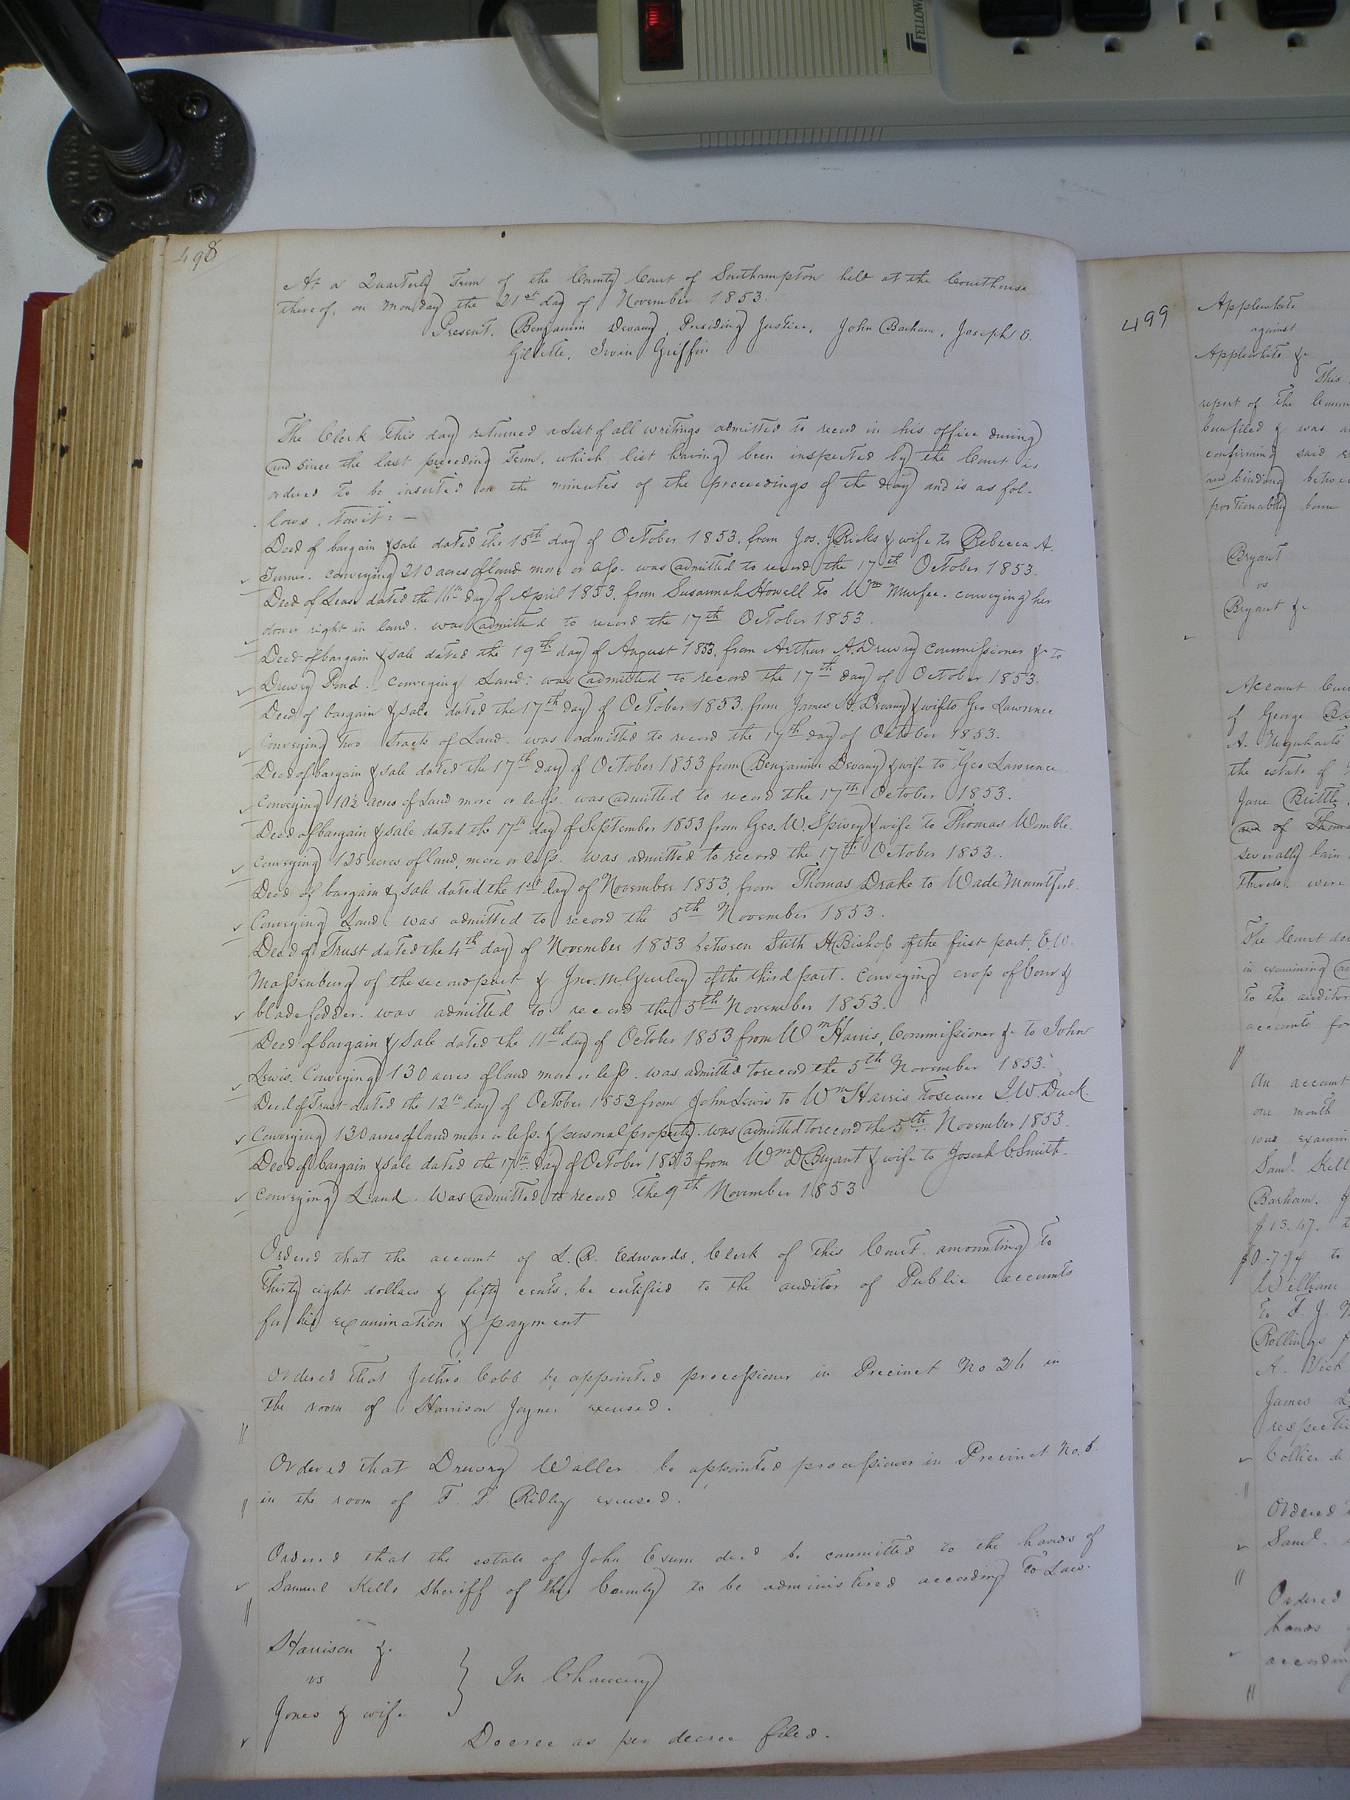 498
At a Quarterly Term of the County Court of Southampton held at the Courthouse
thereof, on Monday the 21st day of November 1853.
Present. Benjamin Devany, Presiding Justice, John Barham, Joseph E.
Gillette, Irvin Griffin
The Clerk this day returned a List of all writings admitted to record in his office during
and since the last preceding Term, which list having been inspected by the Court is
ordered to be inserted in the minutes of the proceedings of the day and is as fol-
lows, Towit: —
Deed of bargain & sale dated the 15th day of October 1853, from Jos. J Ricks & wife to Rebecca A.
Turner. conveying 210 acres of land more or less. was admitted to record the 17th October 1853.
Deed of Lease dated the 16th day of April 1853, from Susannah Howell to Wm Murfee. conveying her
dower right in land. was admitted to record the 17th October 1853.
Deed of bargain & sale dated the 19th day of August 1853, from Arthur A. Drewry Commissioner &c to
Drewry Pond. conveying Land: was admitted to record the 17th day of October 1853.
Deed of bargain & sale dated the 17th day of October 1853, from James H. Devany & wife to Geo Lawrence
Conveying two tracts of Land. was admitted to record the 17th day of October 1853.
Deed of bargain & sale dated the 17th day of October 1853 from Benjamin Devany & wife to Geo Lawrence
conveying 102 acres of Land more or less. was admitted to record the 17th October 1853.
Deed of bargain & sale dated the 17th day of September 1853 from Geo. W. Spivey & wife to Thomas Womble.
conveying 125 acres of land, more or less. was admitted to record the 17th October 1853.
Deed of bargain & sale dated the 1st day of November 1853, from Thomas Drake to Wade Mountford.
Conveying Land was admitted to record the 5th November 1853.
Deed of Trust dated the 4th day of November 1853 between Suth H Bishop of the first part, E W.
Massenburg of the second part & Jno. McGurley of the third part. conveying crop of Corn &
blade fodder. was admitted to record the 5th November 1853.
Deed of bargain & Sale dated the 11th day of October 1853 from Wm Harris, Commissioner &c to John
Lewis. Conveying 130 acres of land more or less. was admitted to record the 5th November 1853.
Deed of Trust dated the 12th day of October 1853 from John Lewis to Wm Harris to secure I. W. Duck.
Conveying 130 acres of land more or less. & personal property. was admitted to record the 5th November 1853.
Deed of bargain & sale dated the 17th day of October 1853 from Wm D Bryant & wife to Josiah C Smith.
conveying Land. was admitted to record the 9th November 1853
Ordered that the account of L. R. Edwards, Clerk of this Court, amounting to
Thirty eight dollars & fifty cents, be certified to the auditor of Public accounts
for his examination & payment
Ordered that Jethro Cobb be appointed processioner in Precinct No 26 in
the room of Harrison Joyner excused.
Ordered that Drewry Waller be appointed processioner in Precinct No. 5
in the room of F. T. Ridley excused.
Ordered that the estate of John Exum decd be committed to the hands of
Samuel Kello Sheriff of this County to be administered according to Law.
Harrison &c
vs
Jones & wife
In Chancery
Decree as per decree filed.
499
Applewhite
against
Applewhite &c
This
report of the Comm
been filed & was
confirming said
and binding betwe
portionably born
Bryant
vs
Bryant &c
Account
of George
A. Urquharts
the estate of
Jane Brittle
and of Thom
severally lain
thereto were
The Court
in examining
to the auditor
accounts for
An account
one month
was examin
Saml. Kell
Barham.
$13.47.
William
to F. J.
Rollings
James
respecti
Collier
Ordered
Saml.
Ordered
hands
accordin
FELLOW